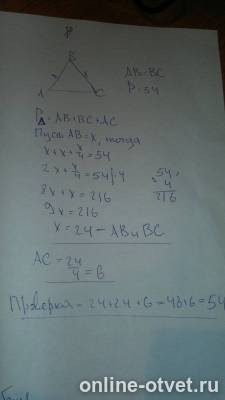 B
A C
AB=BC
P=54
P△=AB+BC+AC
Пусть AB=x, тогда
x+x+x/4=54
2x+x/4=54|·4
8x+x=216
9x=216
x=24 – AB и BC
54
4
216
AC=24/4=6
Проверка – 24+24+6=48+6=54
online-otvet.ru